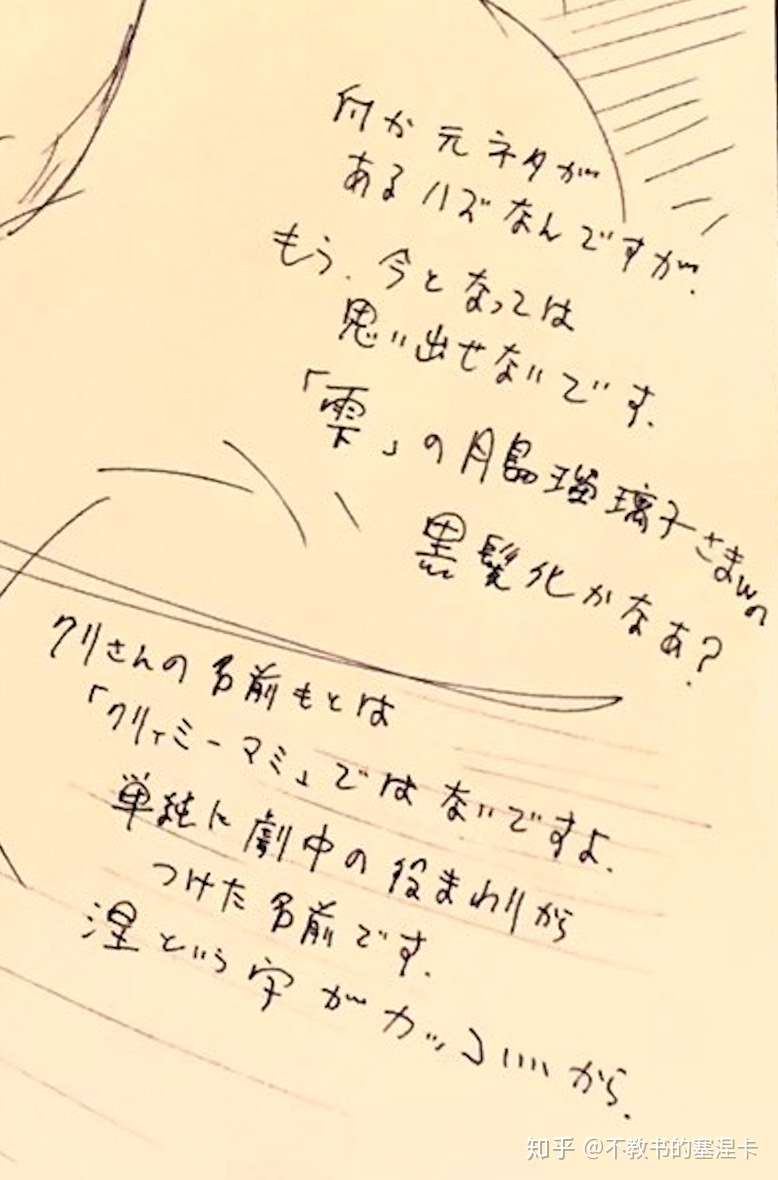 何か元ネタが
あるハズなんですが.
もう、今となっては
思い出せないです.
「雫」の月島瑠璃子さまwの
黒髪化かなぁ?
クリさんの名前もとは
「クリィミーマミ」ではないですよ.
単純に劇中の役まわりから
つけた名前です.
涅という字がカッコいいから.
知乎 @不教书的塞涅卡